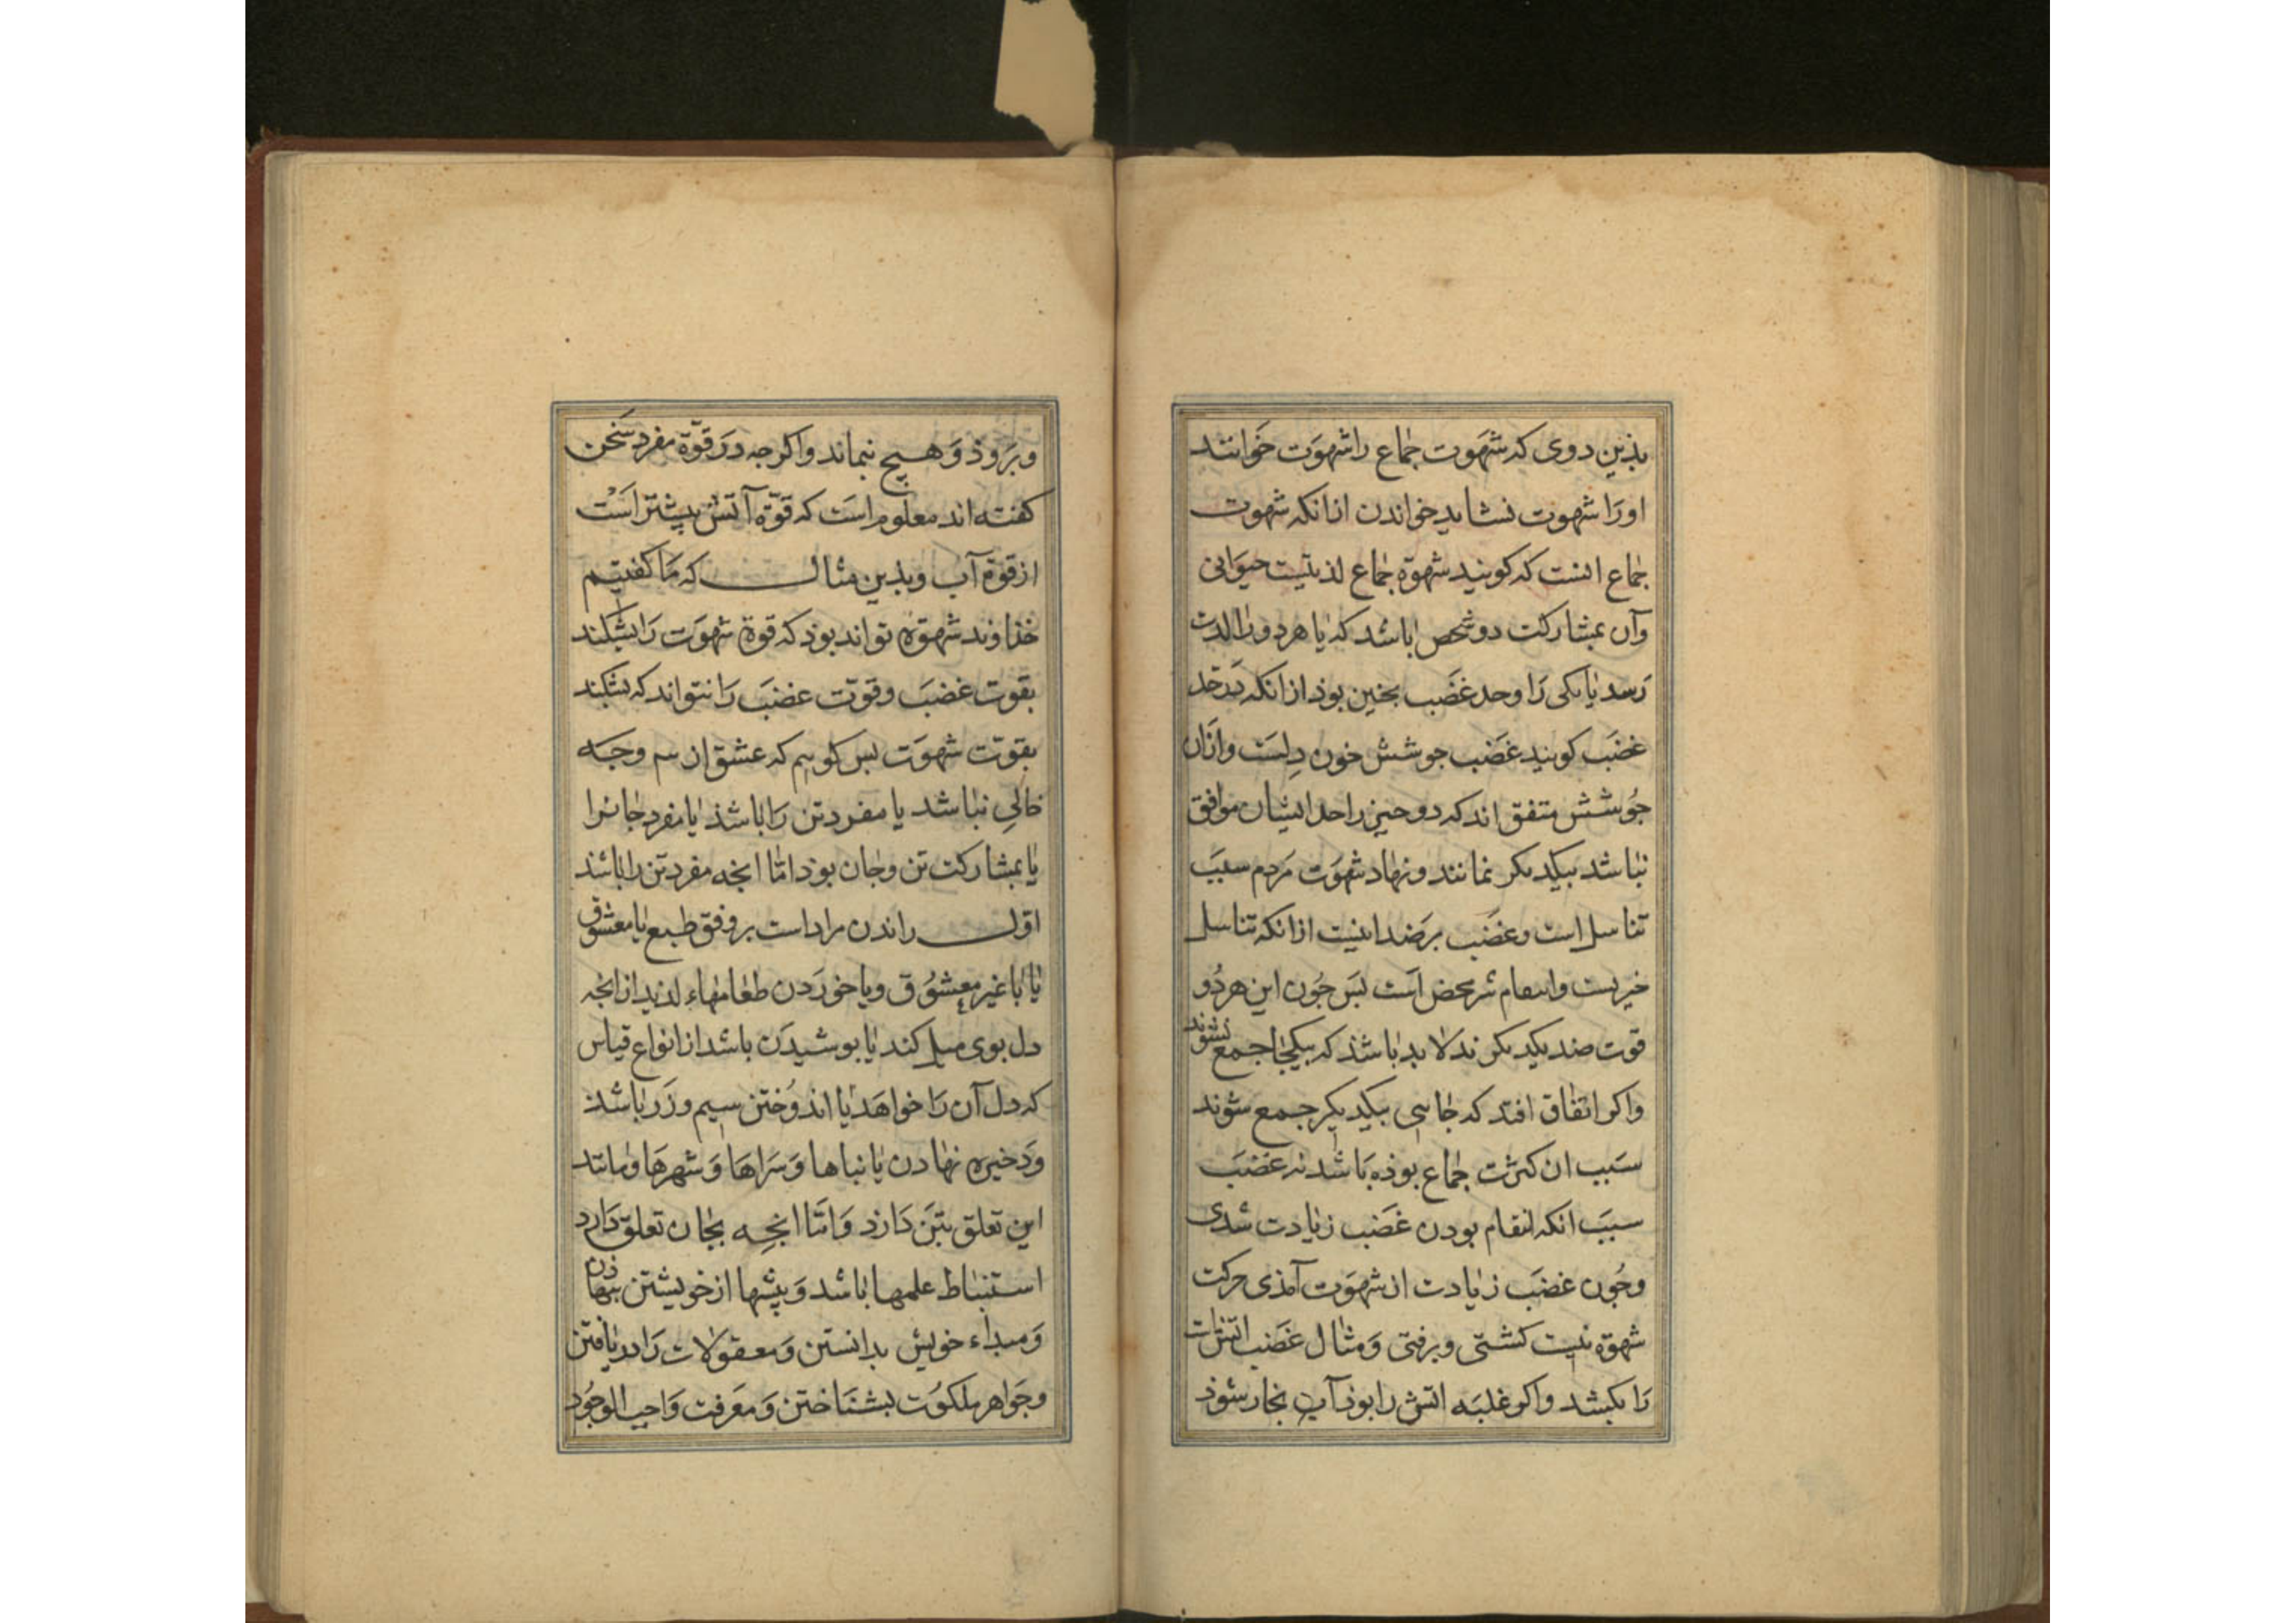 بذین دوی که شهوت جماع را شهوت خوانند
اورا شهوت نشاید خواندن ازانکه شهوت
جماع انست که کویند شهوة جماع لذتیست حیوانی
وآن بمشارکت دو شخص باشد که یا هر دو را لذت
رسد یا یکی را وحد غضب بخین بوذ ازانکه در حد
غضب کویند غضب جوشش خون دلست وازان
جوشش متفق اند که دو حیز را حد ایشان موافق
نباشد بیکدیکر نمانند ونهاد شهوت مردم سبب
تناسل است وغضب بر ضد اینیست ازانکه تناسل
خیریست وانتقام شر محض است بس جون این هر دو
قوت ضد یکدیکرند لا بد باشذ که بیکجا جمع نشوند
واکر اتفاق افتد که جایی بیکدیکر جمع شوند
سبب ان کثرت جماع بوذه باشد نه غضب
سبب انکه انتقام بودن غضب زیادت شدی
وجون غضب زیادت از شهوت آمذی حرکت
شهوة نیست کشتی وبرفتی ومثال غضب اتش است
را بکشد واکر غلبه اتش را بوذ آب بخار شوذ
وبروذ وهیج نماند واکرجه در قوة مفرد سخن
کفته اند معلوم است که قوة آتش بیشتر است
از قوة آب وبذین مثال که ما کفتیم
خذاوند شهوة تواند بوذ که قوة شهوت را بشکند
بقوت غضب وقوت غضب را نتواند که بشکند
بقوت شهوت بس کوییم که عشق از سه وجه
خالی نباشد یا مفرد تن را باشذ یا مفرد جانرا
یا بمشارکت تن وجان بوذ امّا انجه مفرد تن را باشذ
اوّل راندن مراد است بر وفق طبع با معشوق
یا با غیر معشوق ویا خوردن طعامهاء لذیذ از انجه
دل بوی میل کند یا بوشیدن باشد از انواع قیاس
که دل آن را خواهد یا اندوختن سیم وزر باشذ
وذخیره نهادن یا بناها وسراها وشهرها ومانند
این تعلق بتن دارذ وامّا انجه بجان تعلق دارد
استنباط علمها باشد وبیشها از خویشتن
ومبداء خویش بدانستن ومعقولات را دریافتن
وجواهر ملکوت بشناختن ومعرفت واجب الوجود